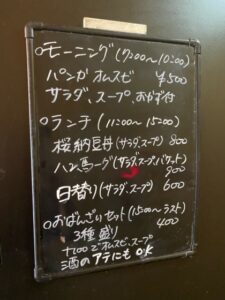 ○モーニング(7:00〜10:00)
パンかオムスビ ¥500
サラダ、スープ、おかず付
○ランチ(11:00〜15:00)
桜納豆丼(サラダ、スープ) 800
ハン馬ーグ(サラダ、スープ、バケット)
900
日替り(サラダ、スープ) 600
○おばんざいセット(15:00〜ラスト)
3種盛り 400
+100でオムスビ、スープ
酒のアテにもOK